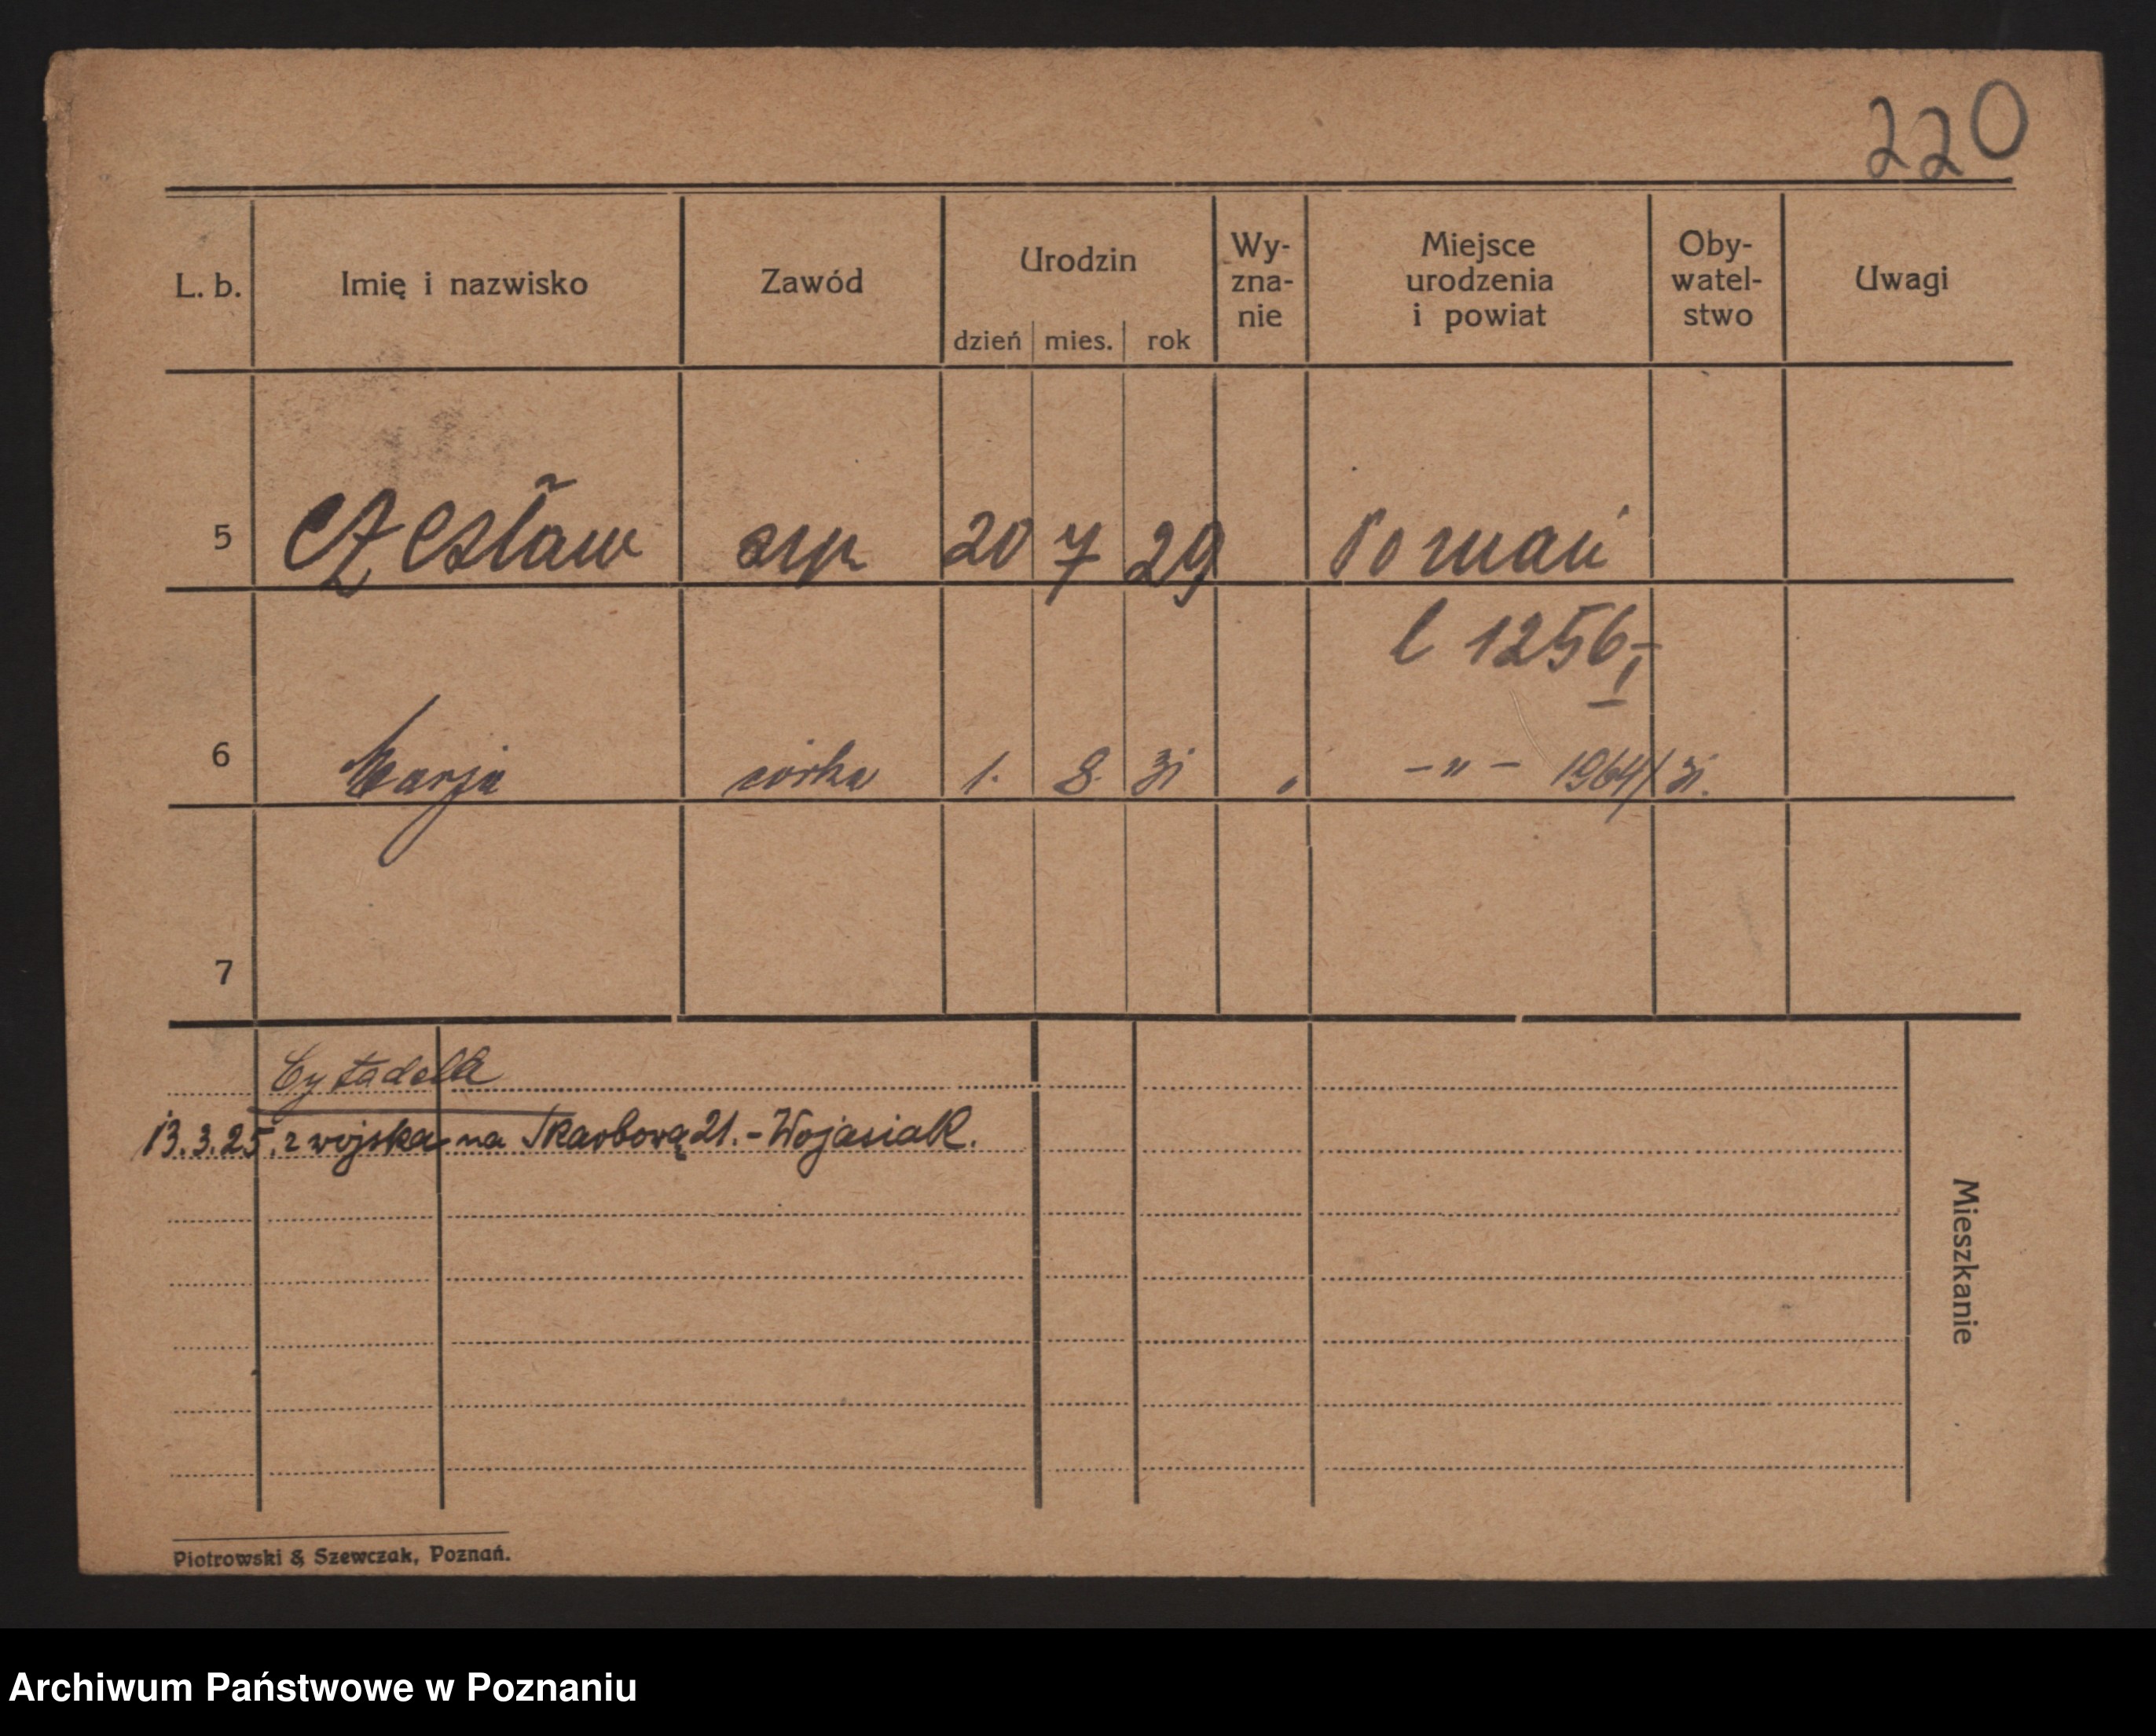 220
L. b. Imię i nazwisko Zawód Urodzin dzień mies. rok Wy-zna-nie Miejsce urodzenia i powiat Oby-watel-stwo Uwagi
5 Czesław syn 20 7 29 Poznań
l 1256,-
6 Marja córka 1. 8. 31 " -"- 1964/31.
7
Cytadella
13.3.25. z wojska na Skarbową 21. - Wojasiak.
Mieszkanie
Piotrowski & Szewczak, Poznań.
Archiwum Państwowe w Poznaniu